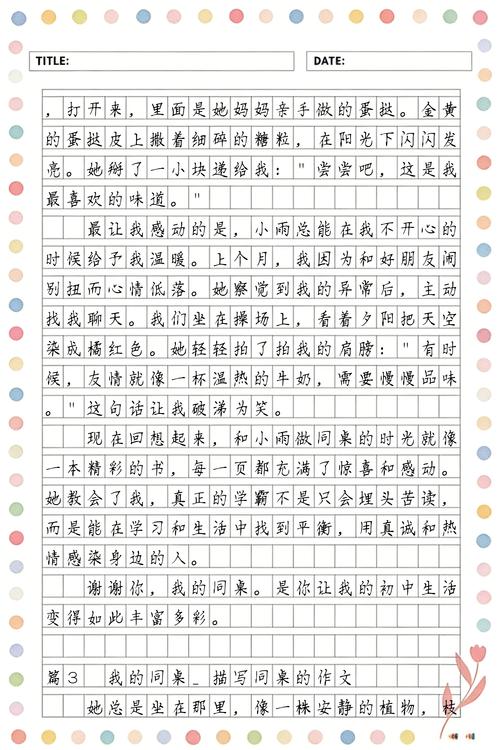 TITLE: DATE:
，打开来，里面是她妈妈亲手做的蛋挞。金黄
的蛋挞皮上撒着细碎的糖粒，在阳光下闪闪发
亮。她掰了一小块递给我："尝尝吧，这是我
最喜欢的味道。"
最让我感动的是，小雨总能在我不开心的
时候给予我温暖。上个月，我因为和好朋友闹
别扭而心情低落。她察觉到我的异常后，主动
找我聊天。我们坐在操场上，看着夕阳把天空
染成橘红色。她轻轻拍了拍我的肩膀："有时
候，友情就像一杯温热的牛奶，需要慢慢品味
。"这句话让我破涕为笑。
现在回想起来，和小雨做同桌的时光就像
一本精彩的书，每一页都充满了惊喜和感动。
她教会了我，真正的学霸不是只会埋头苦读，
而是能在学习和生活中找到平衡，用真诚和热
情感染身边的人。
谢谢你，我的同桌。是你让我的初中生活
变得如此丰富多彩。
篇3 我的同桌_描写同桌的作文
她总是坐在那里，像一株安静的植物，枝